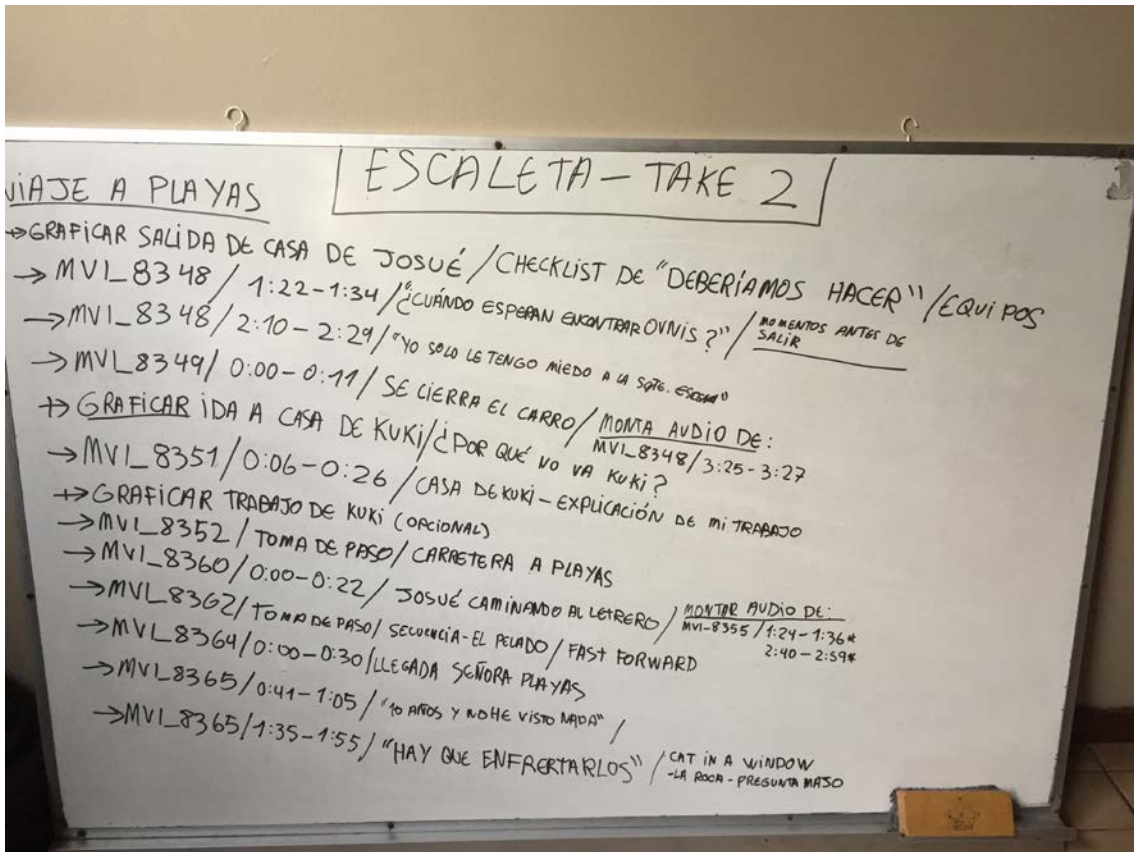 ESCALETA - TAKE 2
VIAJE A PLAYAS
→ GRAFICAR SALIDA DE CASA DE JOSUÉ / CHECKLIST DE "DEBERÍAMOS HACER" / EQUIPOS
→ MVI_8348 / 1:22-1:34 / "¿CUÁNDO ESPERAN ENCONTRAR OVNIS?" / MOMENTOS ANTES DE
SALIR
→ MVI_8348 / 2:10-2:29 / "YO SOLO LE TENGO MIEDO A LA SQTE.
→ MVI_8349 / 0:00-0:11 / SE CIERRA EL CARRO / MONTA AUDIO DE:
MVI_8348 / 3:25-3:27
→ GRAFICAR IDA A CASA DE KUKI / ¿POR QUÉ NO VA KUKI?
→ MVI_8351 / 0:06-0:26 / CASA DE KUKI - EXPLICACIÓN DE MI TRABAJO
→ GRAFICAR TRABAJO DE KUKI (OPCIONAL)
→ MVI_8352 / TOMA DE PASO / CARRETERA A PLAYAS
→ MVI_8360 / 0:00-0:22 / JOSUÉ CAMINANDO AL LETRERO / MONTAR AUDIO DE:
MVI-8355 / 1:24-1:36*
2:40-2:59*
→ MVI_8362 / TOMA DE PASO / SECUENCIA-EL PELADO / FAST FORWARD
→ MVI_8364 / 0:00-0:30 / LLEGADA SEÑORA PLAYAS
→ MVI_8365 / 0:41-1:05 / "10 AÑOS Y NO HE VISTO NADA" /
→ MVI_8365 / 1:35-1:55 / "HAY QUE ENFRERTARLOS" / CAT IN A WINDOW
-LA ROCA - PREGUNTA MAJO